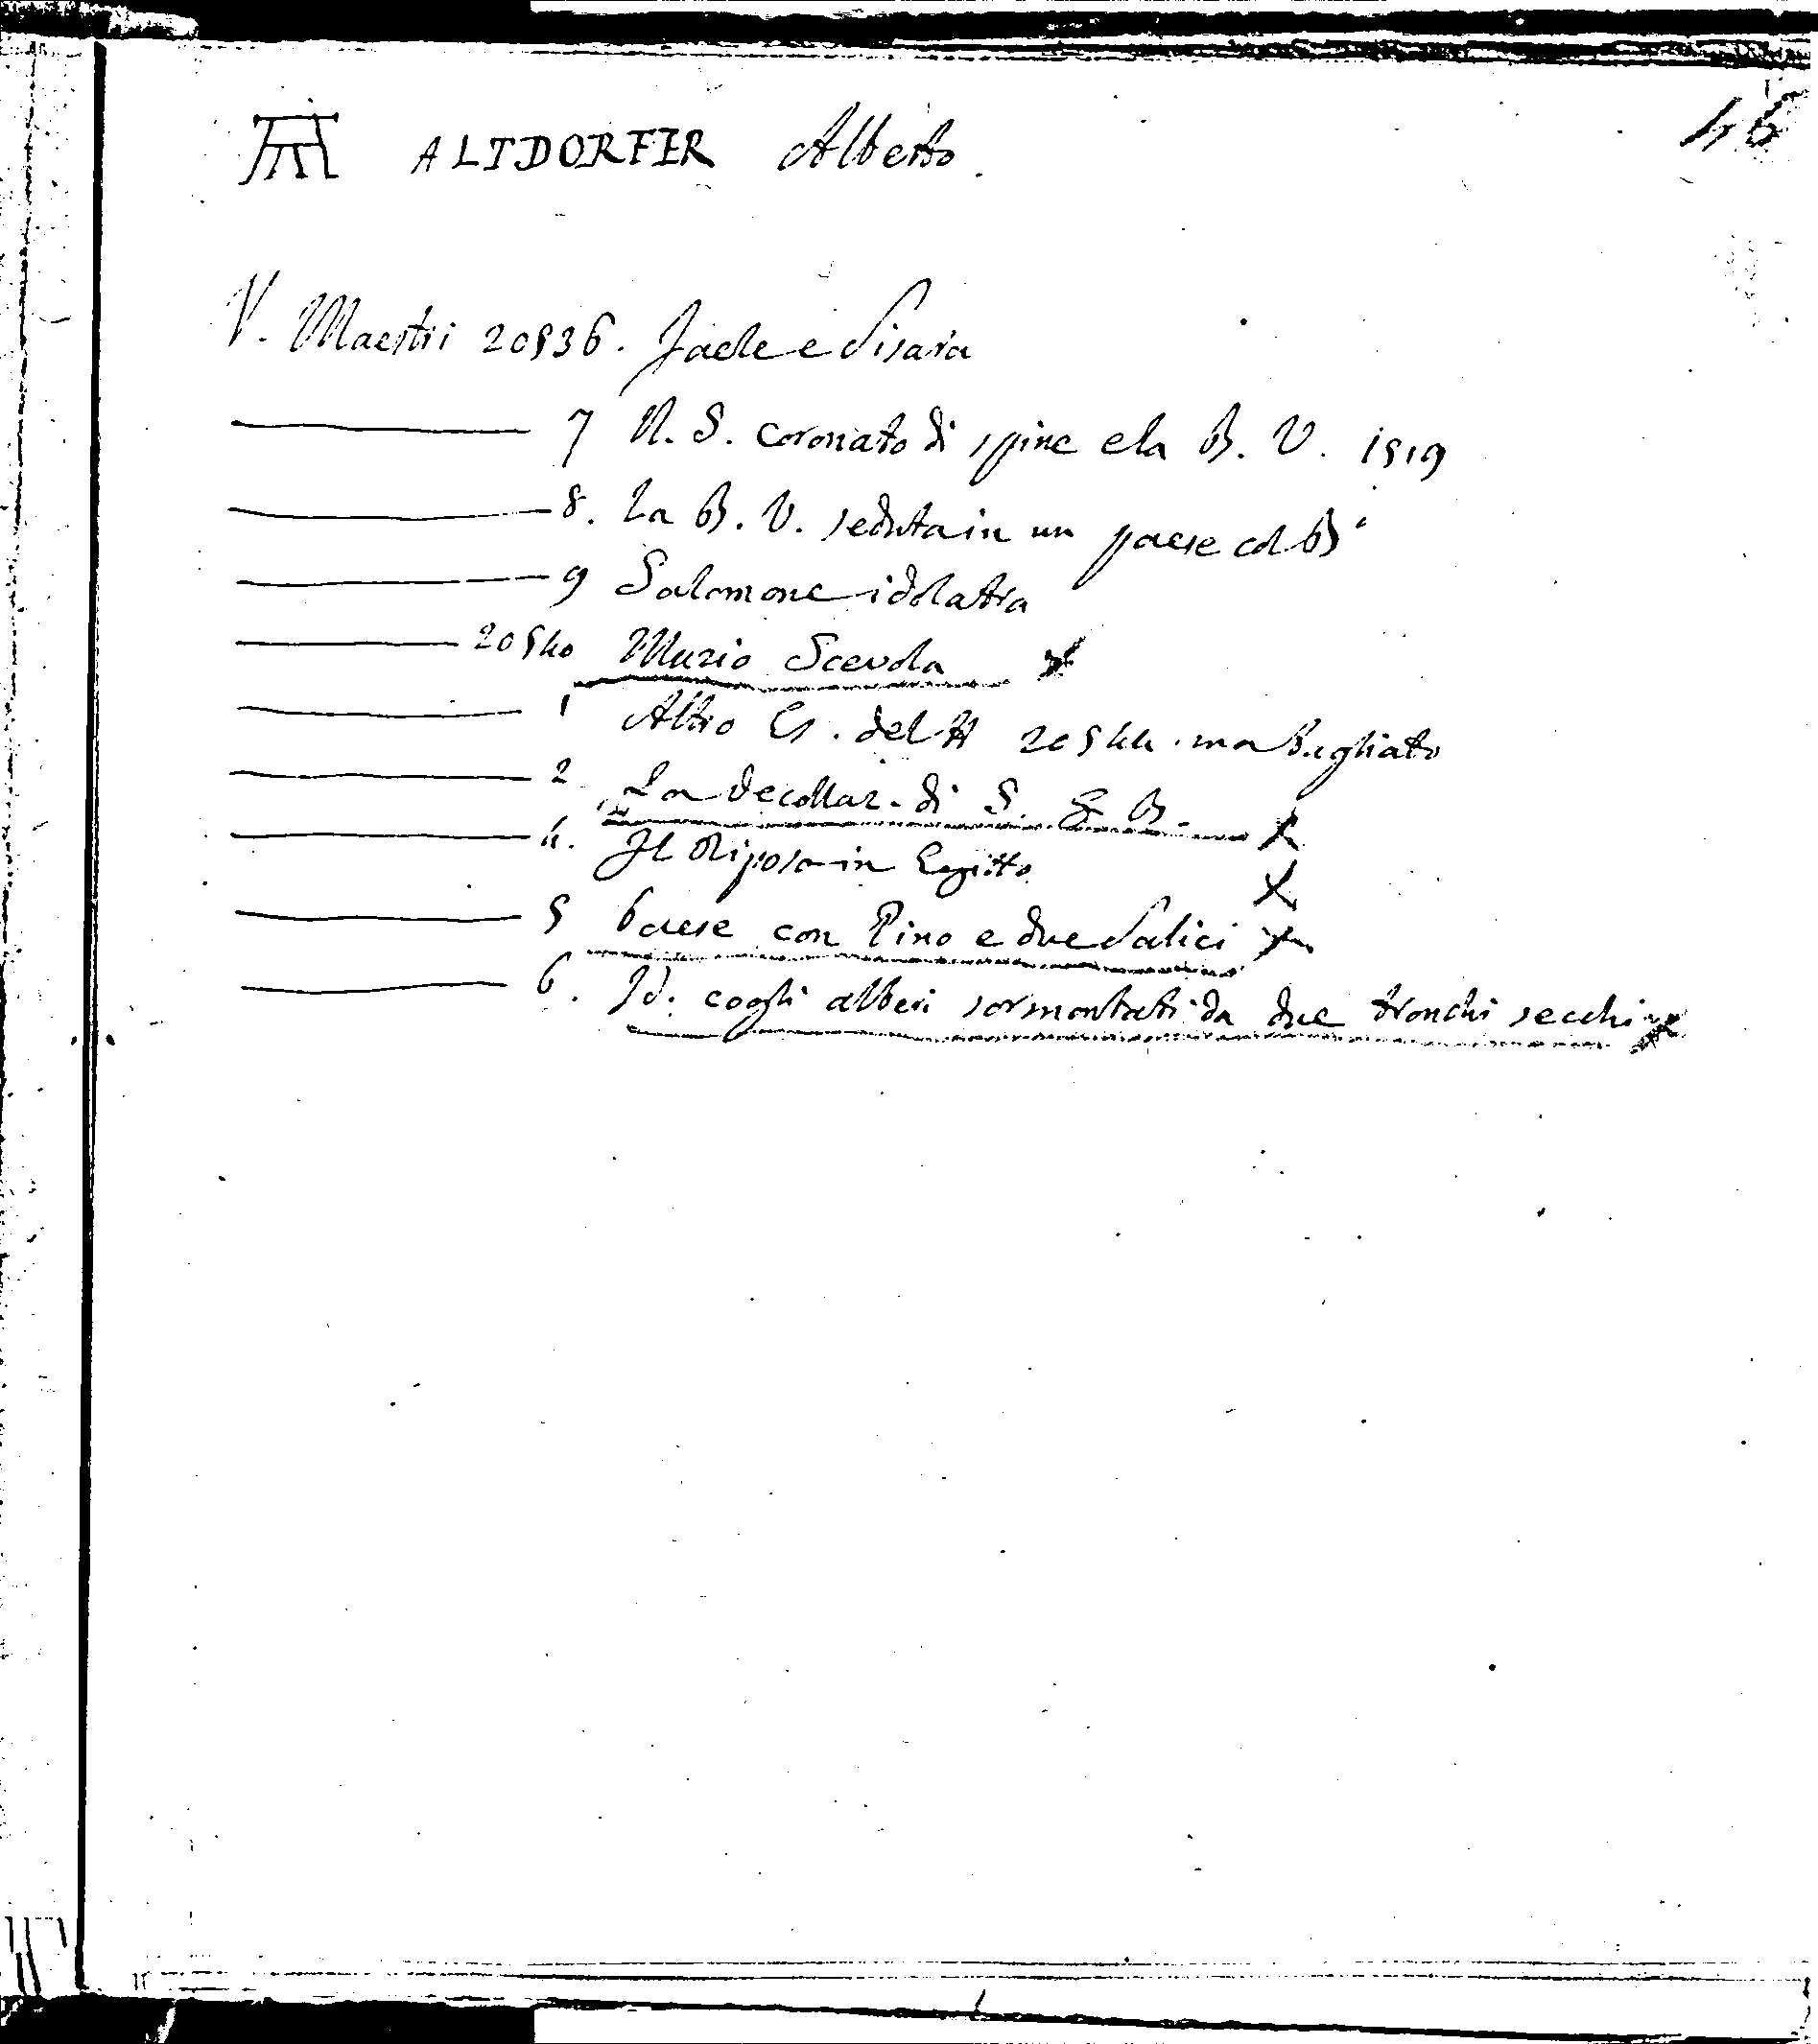 46
ALTDORFER Alberto.
V. Maestri 20536. Jaele e Sisara
7 N. S. coronato di spine e la B. V. 1519
8. La B. V. seduta in un paese col Bº
9 Salomone idolatra
20540 Muzio Scevola x
1 Altro Es. del N 20544. ma tagliato
2 La decollaz. di S. G. B. x
4. Il Riposo in Egitto x
5 Paese con Pino e due Salici x
6. Id. cogli alberi sormontati da due tronchi secchi x